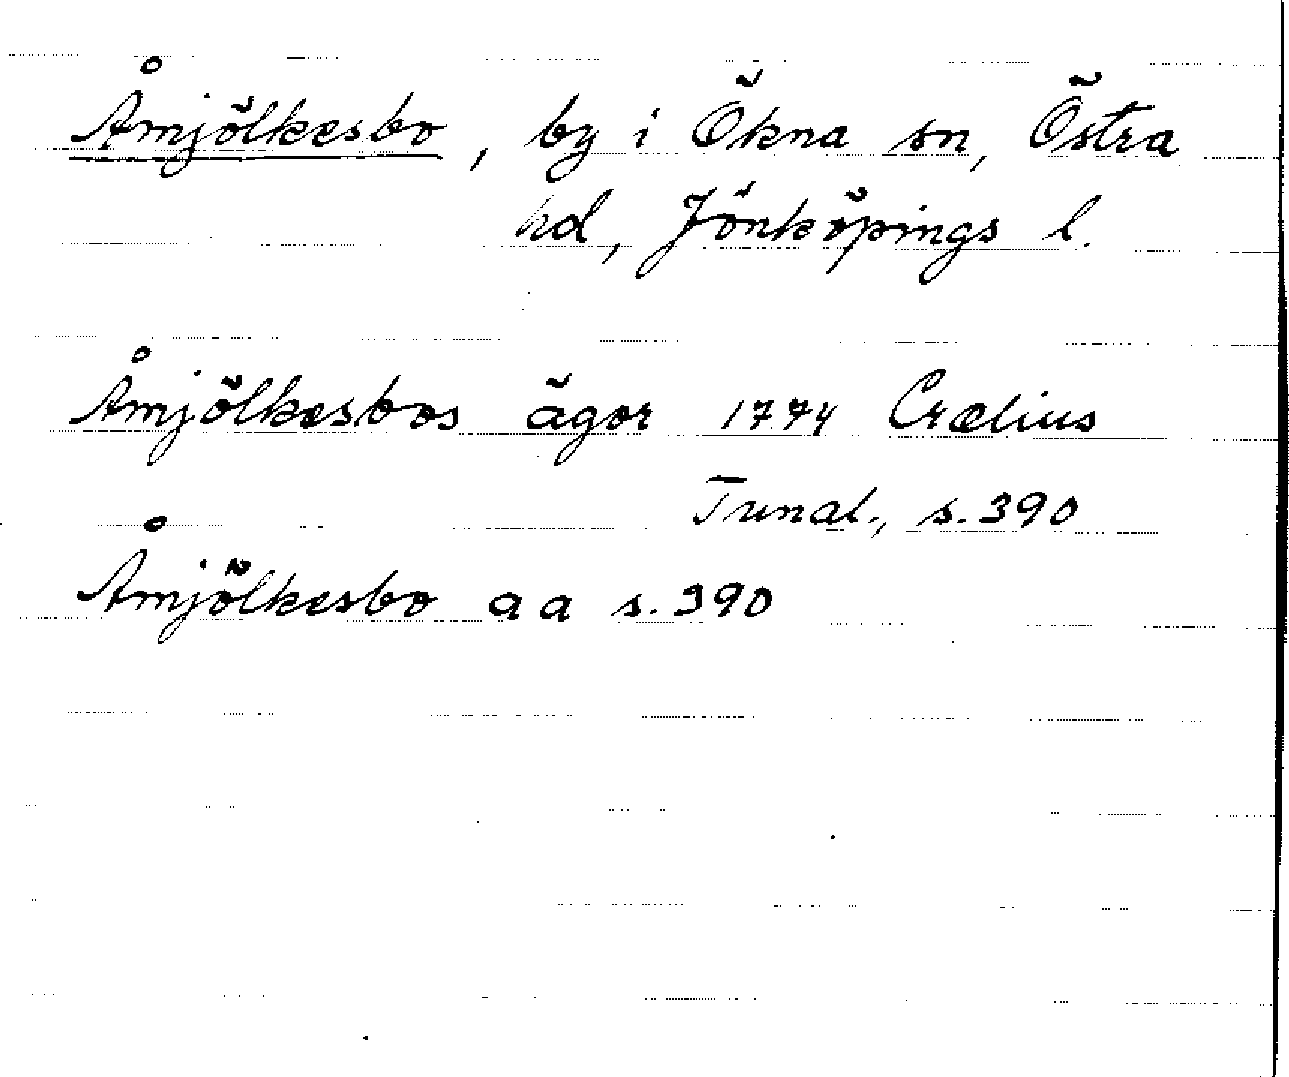 Åmjölkesbo, by i Ökna sn, Östra
hd, Jönköpings l.
Åmjölkesbos ägor 1774 Crælius
Tunal., s. 390
Åmjölkesbo a a s. 390